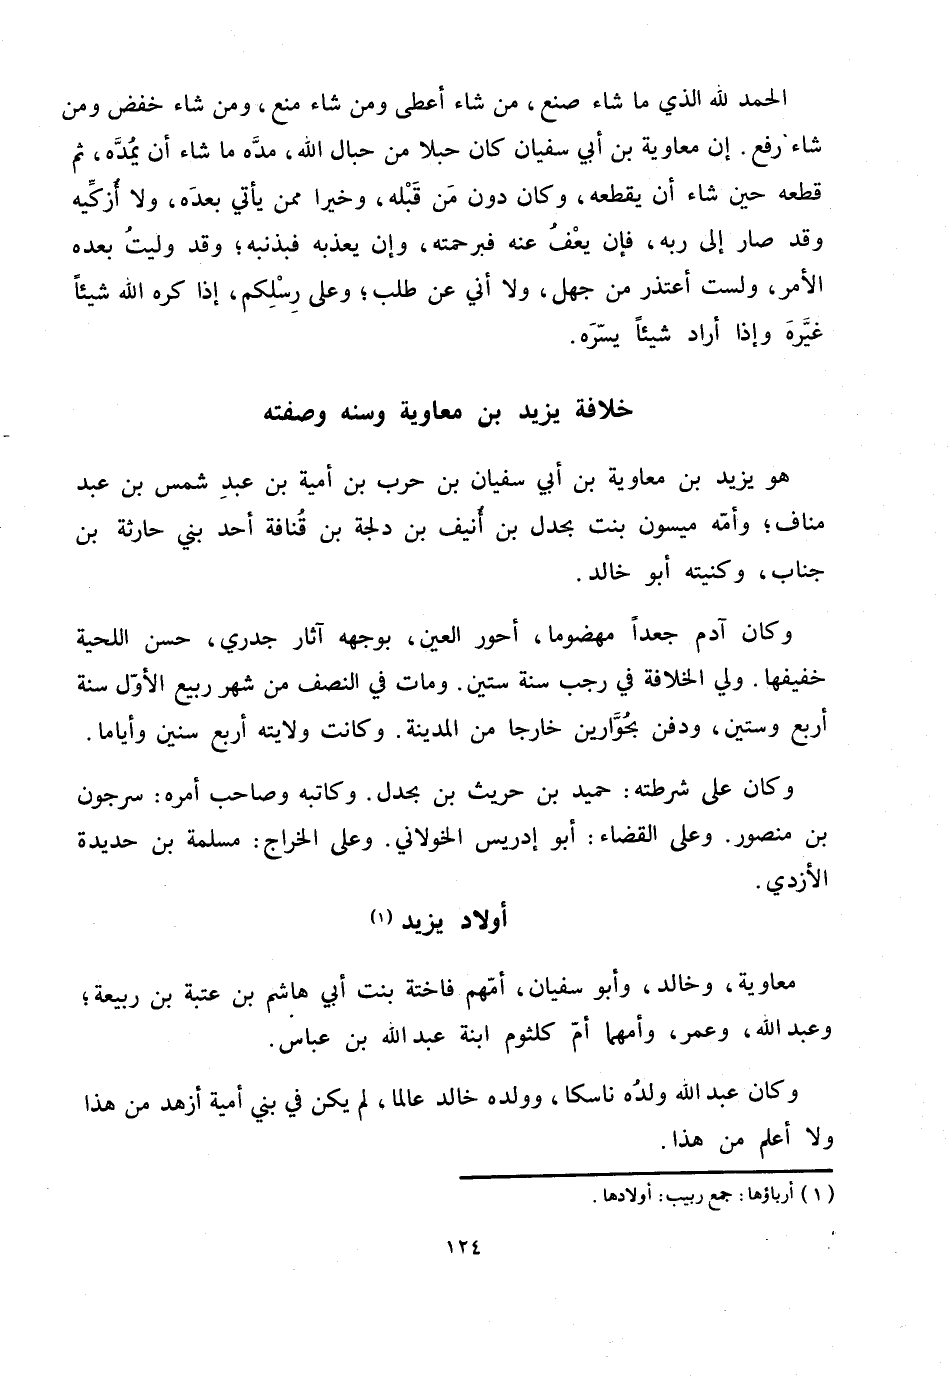 الحمد لله الذي ما شاء صنع، من شاء أعطى ومن شاء منع، ومن شاء خفض ومن
شاء رفع. إن معاوية بن أبي سفيان كان حبلا من حبال الله، مدَّه ما شاء أن يمُدَّه، ثم
قطعه حين شاء أن يقطعه، وكان دون مَن قَبْله، وخيرا ممن يأتي بعدَه، ولا أُزكِّيه
وقد صار إلى ربه، فإن يعْفُ عنه فبرحمته، وإن يعذبه فبذنبه؛ وقد وليتُ بعده
الأمر، ولست أعتذر من جهل، ولا أني عن طلب؛ وعلى رِسْلِكم، إذا كره الله شيئاً
غيَّرَه وإذا أراد شيئاً يسّرَه.
خلافة يزيد بن معاوية وسنه وصفته
هو يزيد بن معاوية بن أبي سفيان بن حرب بن أمية بن عبدِ شمس بن عبد
مناف؛ وأمّه ميسون بنت بحدل بن أُنيف بن دلجة بن قُنافة أحد بني حارثة بن
جناب، وكنيته أبو خالد.
وكان آدم جعداً مهضوما، أحور العين، بوجهه آثار جدري، حسن اللحية
خفيفها. ولي الخلافة في رجب سنة ستين. ومات في النصف من شهر ربيع الأوّل سنة
أربع وستين، ودفن بحُوَّارين خارجا من المدينة. وكانت ولايته أربع سنين وأياما.
وكان على شرطته: حميد بن حريث بن بحدل. وكاتبه وصاحب أمره: سرجون
بن منصور. وعلى القضاء: أبو إدريس الخولاني. وعلى الخراج: مسلمة بن حديدة
الأزدي.
أولاد يزيد (١)
معاوية، وخالد، وأبو سفيان، أمّهم فاختة بنت أبي هاشم بن عتبة بن ربيعة؛
وعبد الله، وعمر، وأمهما أمّ كلثوم ابنة عبد الله بن عباس.
وكان عبد الله ولدُه ناسكا، وولده خالد عالما، لم يكن في بني أمية أزهد من هذا
ولا أعلم من هذا.
(١) أرباؤها: جمع ربيب: أولادها.
١٢٤